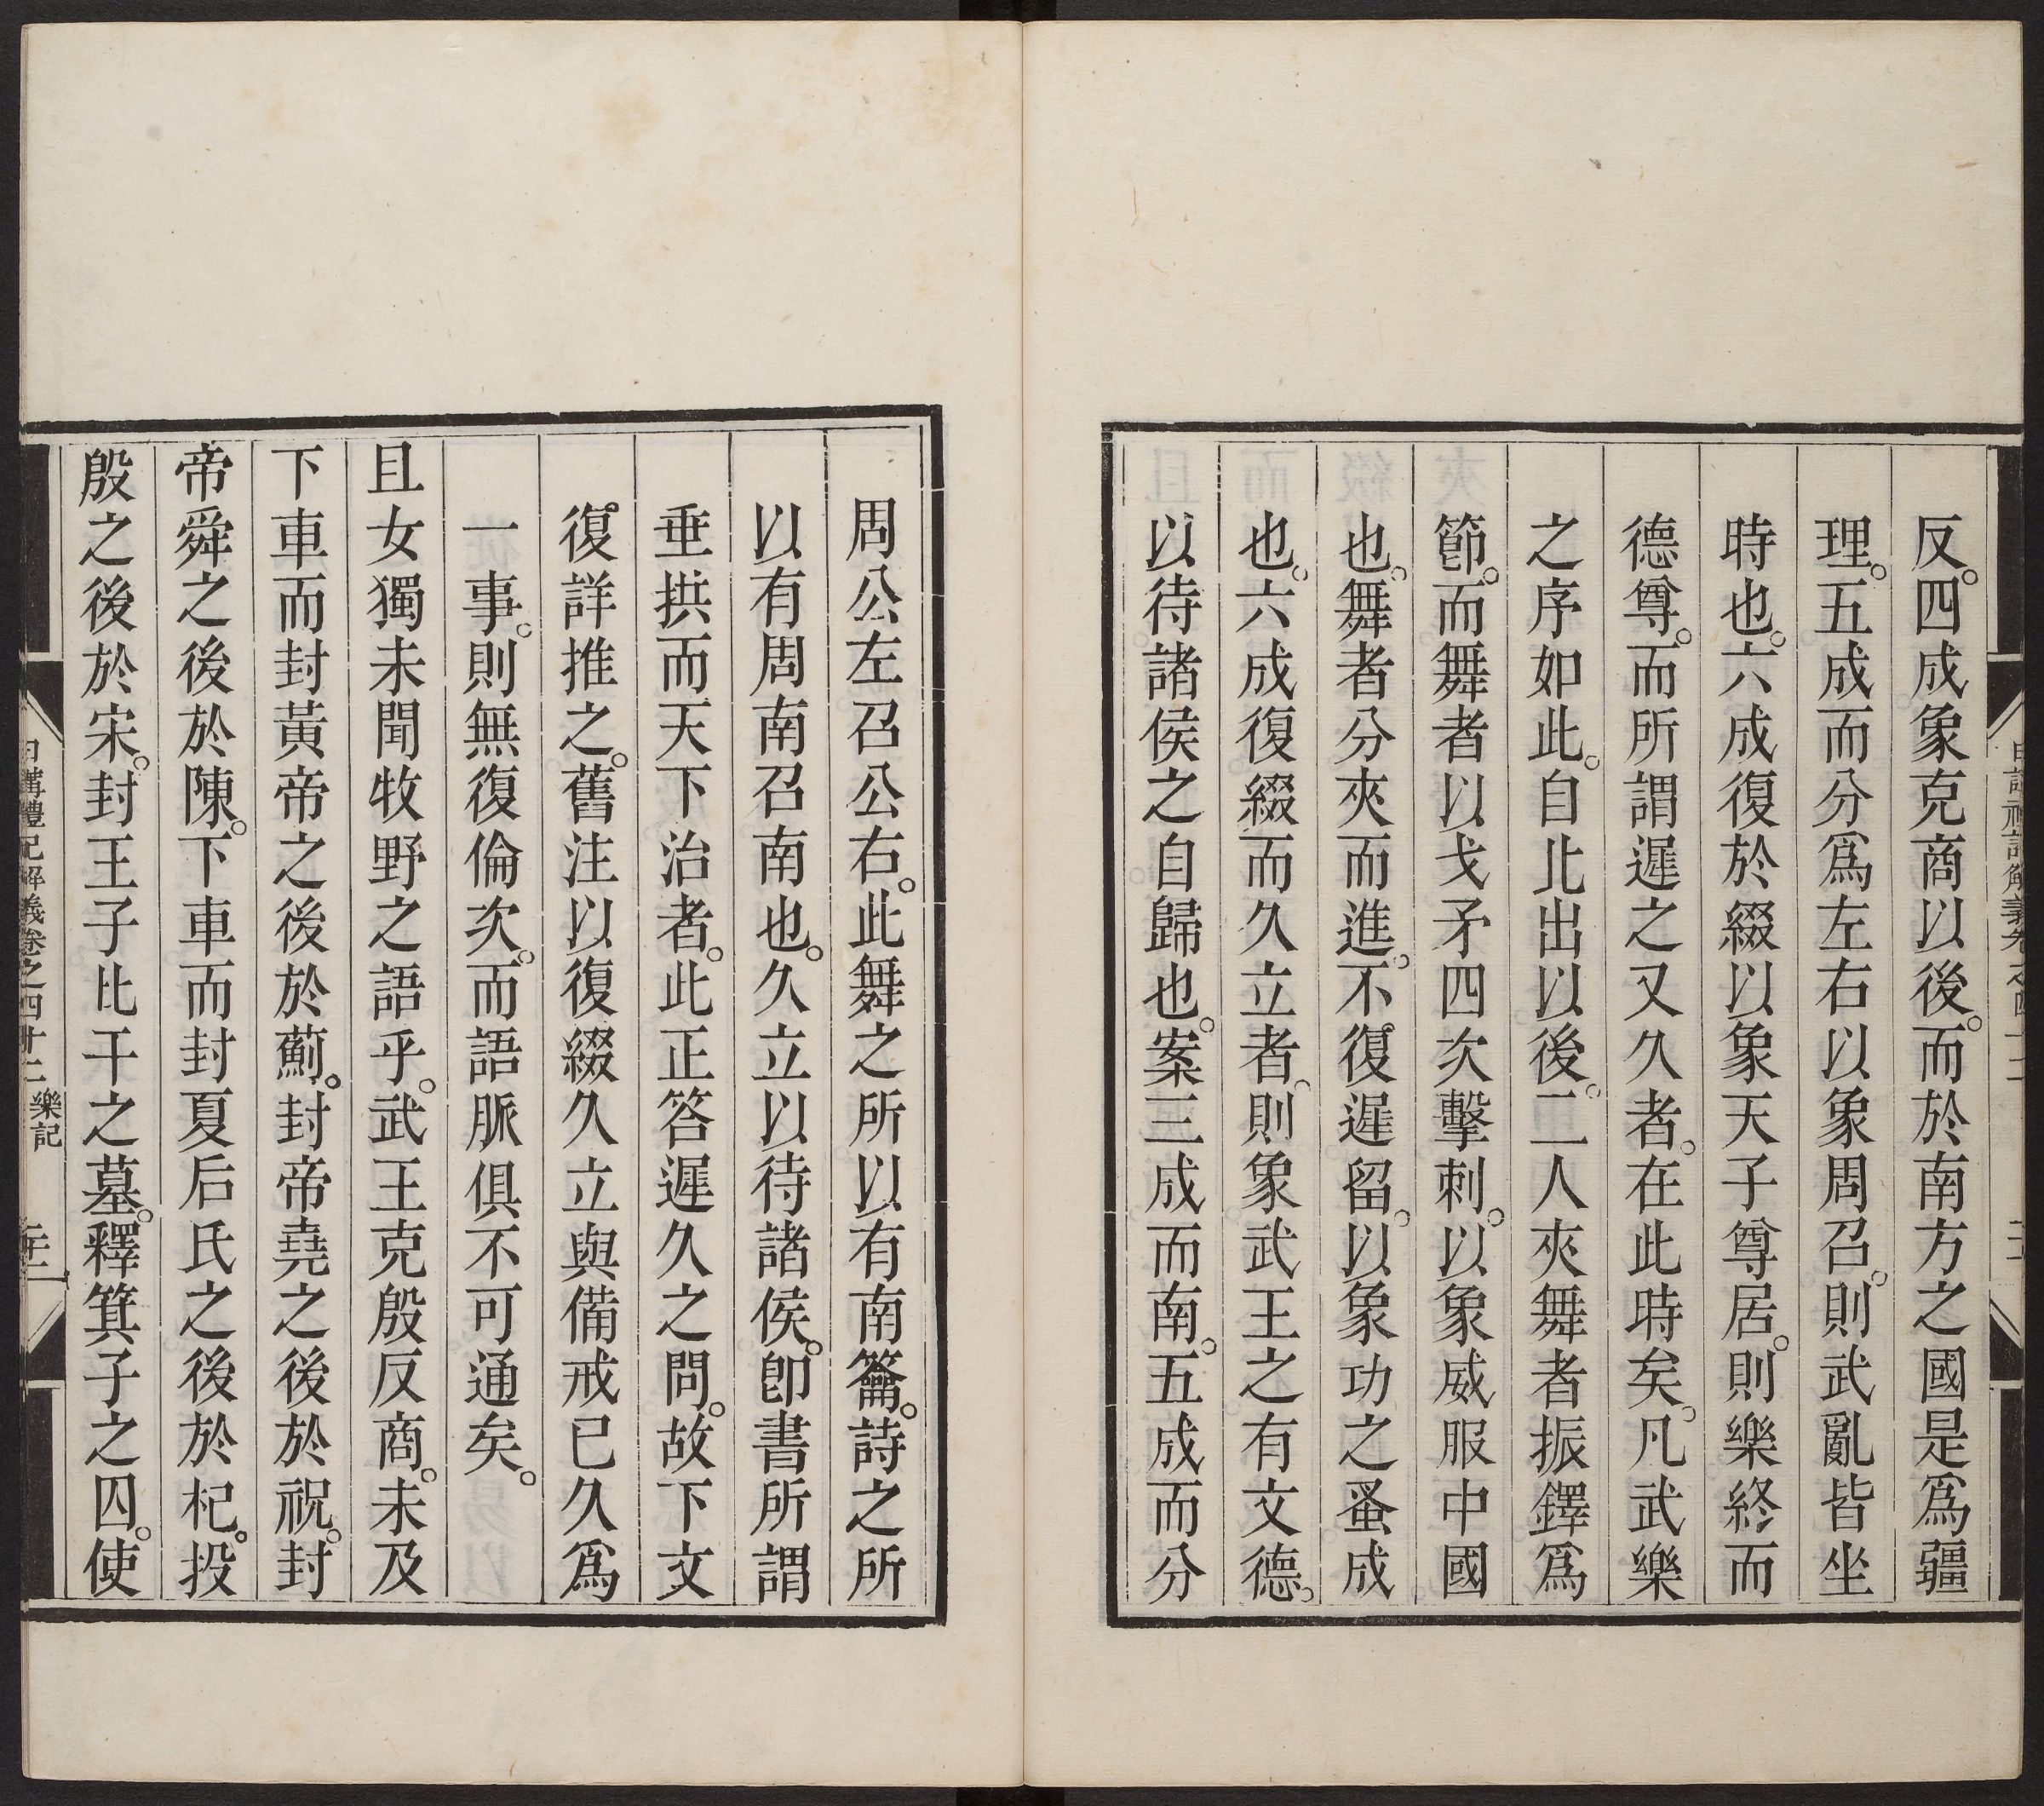 反。四成象克商以後。而於南方之國是爲疆
理。五成而分爲左右以象周召。則武亂皆坐
時也。六成復於綴以象天子尊居。則樂終而
德尊。而所謂遲之又久者。在此時矣。凡武樂
之序如此。自此出以後。二人夾舞者振鐸爲
節。而舞者以戈矛四次擊刺。以象威服中國
也。舞者分夾而進。不復遲留。以象功之蚤成
也。六成復綴而久立者。則象武王之有文德。
以待諸侯之自歸也。案三成而南。五成而分
周公左召公右。此舞之所以有南籥。詩之所
以有周南召南也。久立以待諸侯。卽書所謂
垂拱而天下治者。此正答遲久之問。故下文
復詳推之。舊注以復綴久立與備戒已久爲
一事。則無復倫次。而語脈俱不可通矣。
且女獨未聞牧野之語乎。武王克殷反商。未及
下車而封黃帝之後於薊。封帝堯之後於祝。封
帝舜之後於陳。下車而封夏后氏之後於杞。投
殷之後於宋。封王子比干之墓。釋箕子之囚。使
日講禮記解義卷之四十二 樂記